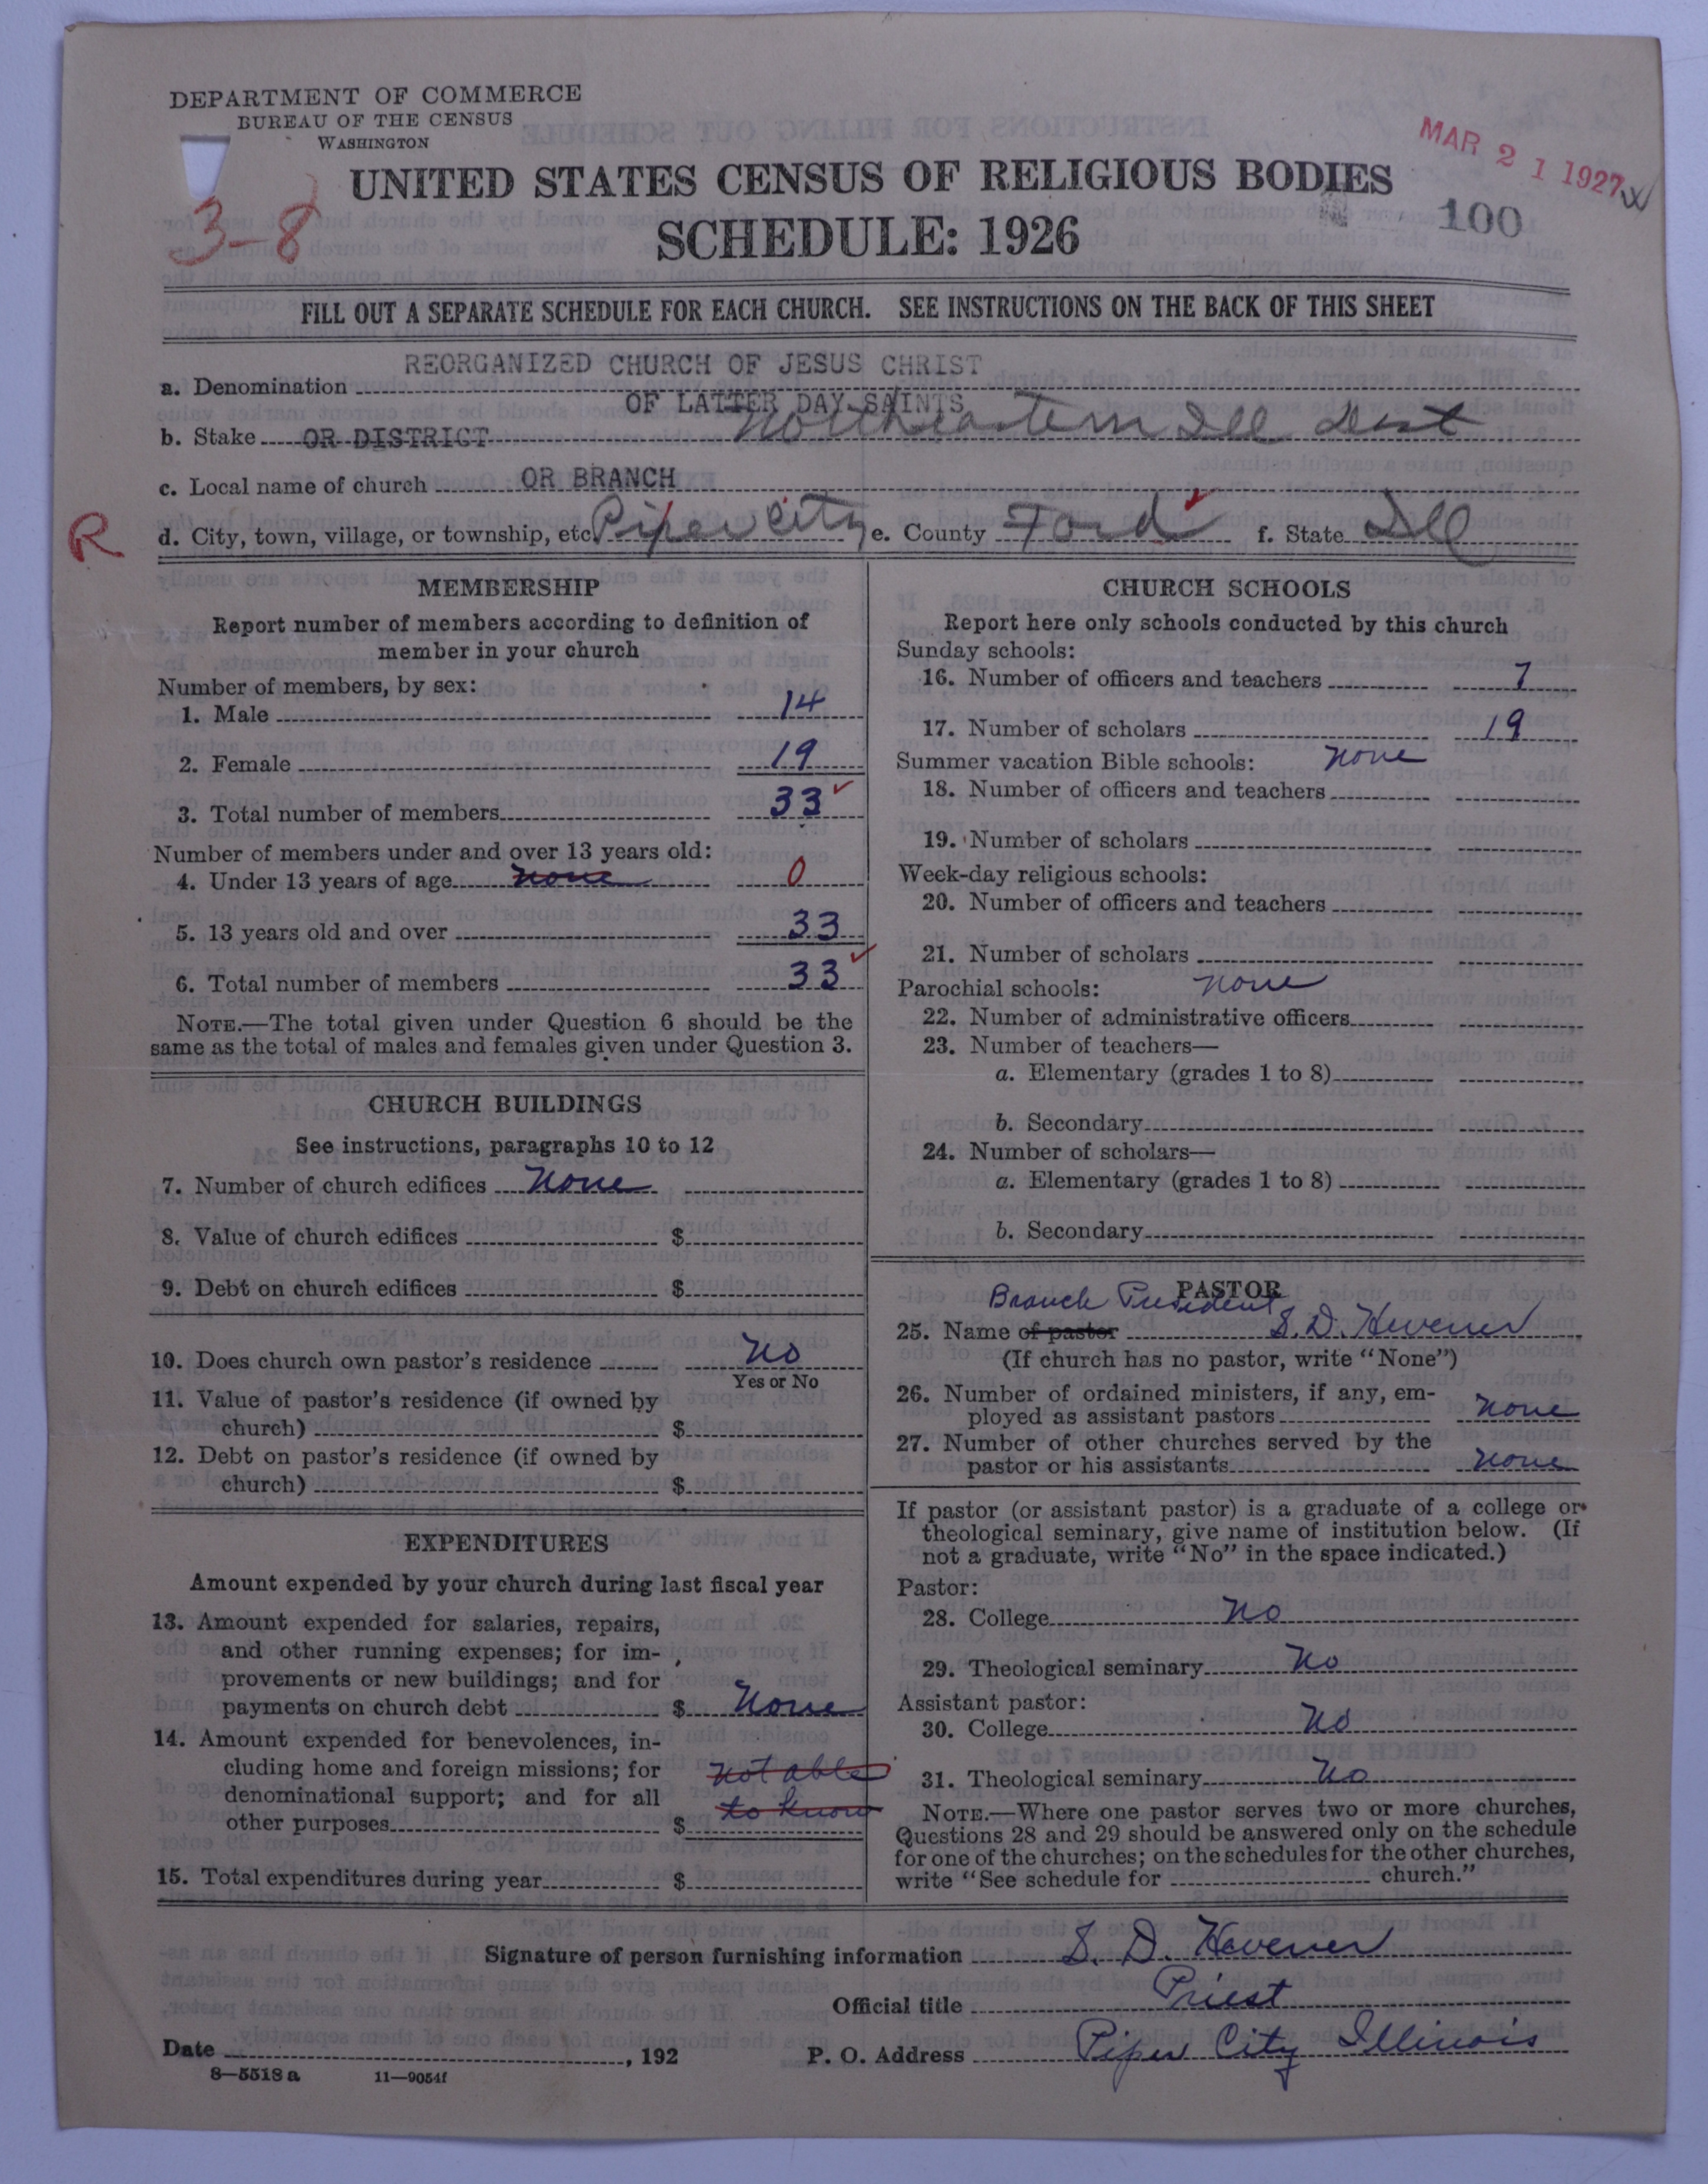 DEPARTMENT OF COMMERCE
BUREAU OF THE CENSUS
WASHINGTON
MAR 21 1927
UNITED STATES CENSUS OF RELIGIOUS BODIES
SCHEDULE: 1926
3-8
100
FILL OUT A SEPARATE SCHEDULE FOR EACH CHURCH. SEE INSTRUCTIONS ON THE BACK OF THIS SHEET
REORGANIZED CHURCH OF JESUS CHRIST
a. Denomination
OF LATTER DAY SAINTS
b. Stake OR DISTRICT Northeastern Ill dist
c. Local name of church OR BRANCH
R
d. City, town, village, or township, etc. Piper City e. County Ford f. State Ill
MEMBERSHIP
Report number of members according to definition of
member in your church
Number of members, by sex:
1. Male 14
2. Female 19
3. Total number of members 33
Number of members under and over 13 years old:
4. Under 13 years of age none 0
5. 13 years old and over 33
6. Total number of members 33
NOTE.—The total given under Question 6 should be the
same as the total of males and females given under Question 3.
CHURCH BUILDINGS
See instructions, paragraphs 10 to 12
7. Number of church edifices None
8. Value of church edifices $
9. Debt on church edifices $
10. Does church own pastor's residence No
Yes or No
11. Value of pastor's residence (if owned by
church) $
12. Debt on pastor's residence (if owned by
church) $
EXPENDITURES
Amount expended by your church during last fiscal year
13. Amount expended for salaries, repairs,
and other running expenses; for im-
provements or new buildings; and for
payments on church debt $ None
14. Amount expended for benevolences, in-
cluding home and foreign missions; for not able
denominational support; and for all to know
other purposes $
15. Total expenditures during year $
CHURCH SCHOOLS
Report here only schools conducted by this church
Sunday schools:
16. Number of officers and teachers 7
17. Number of scholars 19
Summer vacation Bible schools: none
18. Number of officers and teachers
19. Number of scholars
Week-day religious schools:
20. Number of officers and teachers
21. Number of scholars
Parochial schools: none
22. Number of administrative officers
23. Number of teachers—
a. Elementary (grades 1 to 8)
b. Secondary
24. Number of scholars—
a. Elementary (grades 1 to 8)
b. Secondary
PASTOR
Branch President
25. Name of pastor S. D. Hevener
(If church has no pastor, write "None")
26. Number of ordained ministers, if any, em-
ployed as assistant pastors none
27. Number of other churches served by the
pastor or his assistants none
If pastor (or assistant pastor) is a graduate of a college or
theological seminary, give name of institution below. (If
not a graduate, write "No" in the space indicated.)
Pastor:
28. College No
29. Theological seminary No
Assistant pastor:
30. College No
31. Theological seminary No
NOTE.—Where one pastor serves two or more churches,
Questions 28 and 29 should be answered only on the schedule
for one of the churches; on the schedules for the other churches,
write "See schedule for church."
Signature of person furnishing information S. D. Hevener
Official title Priest
Date , 192 P. O. Address Piper City Illinois
8—5518a 11—9054f